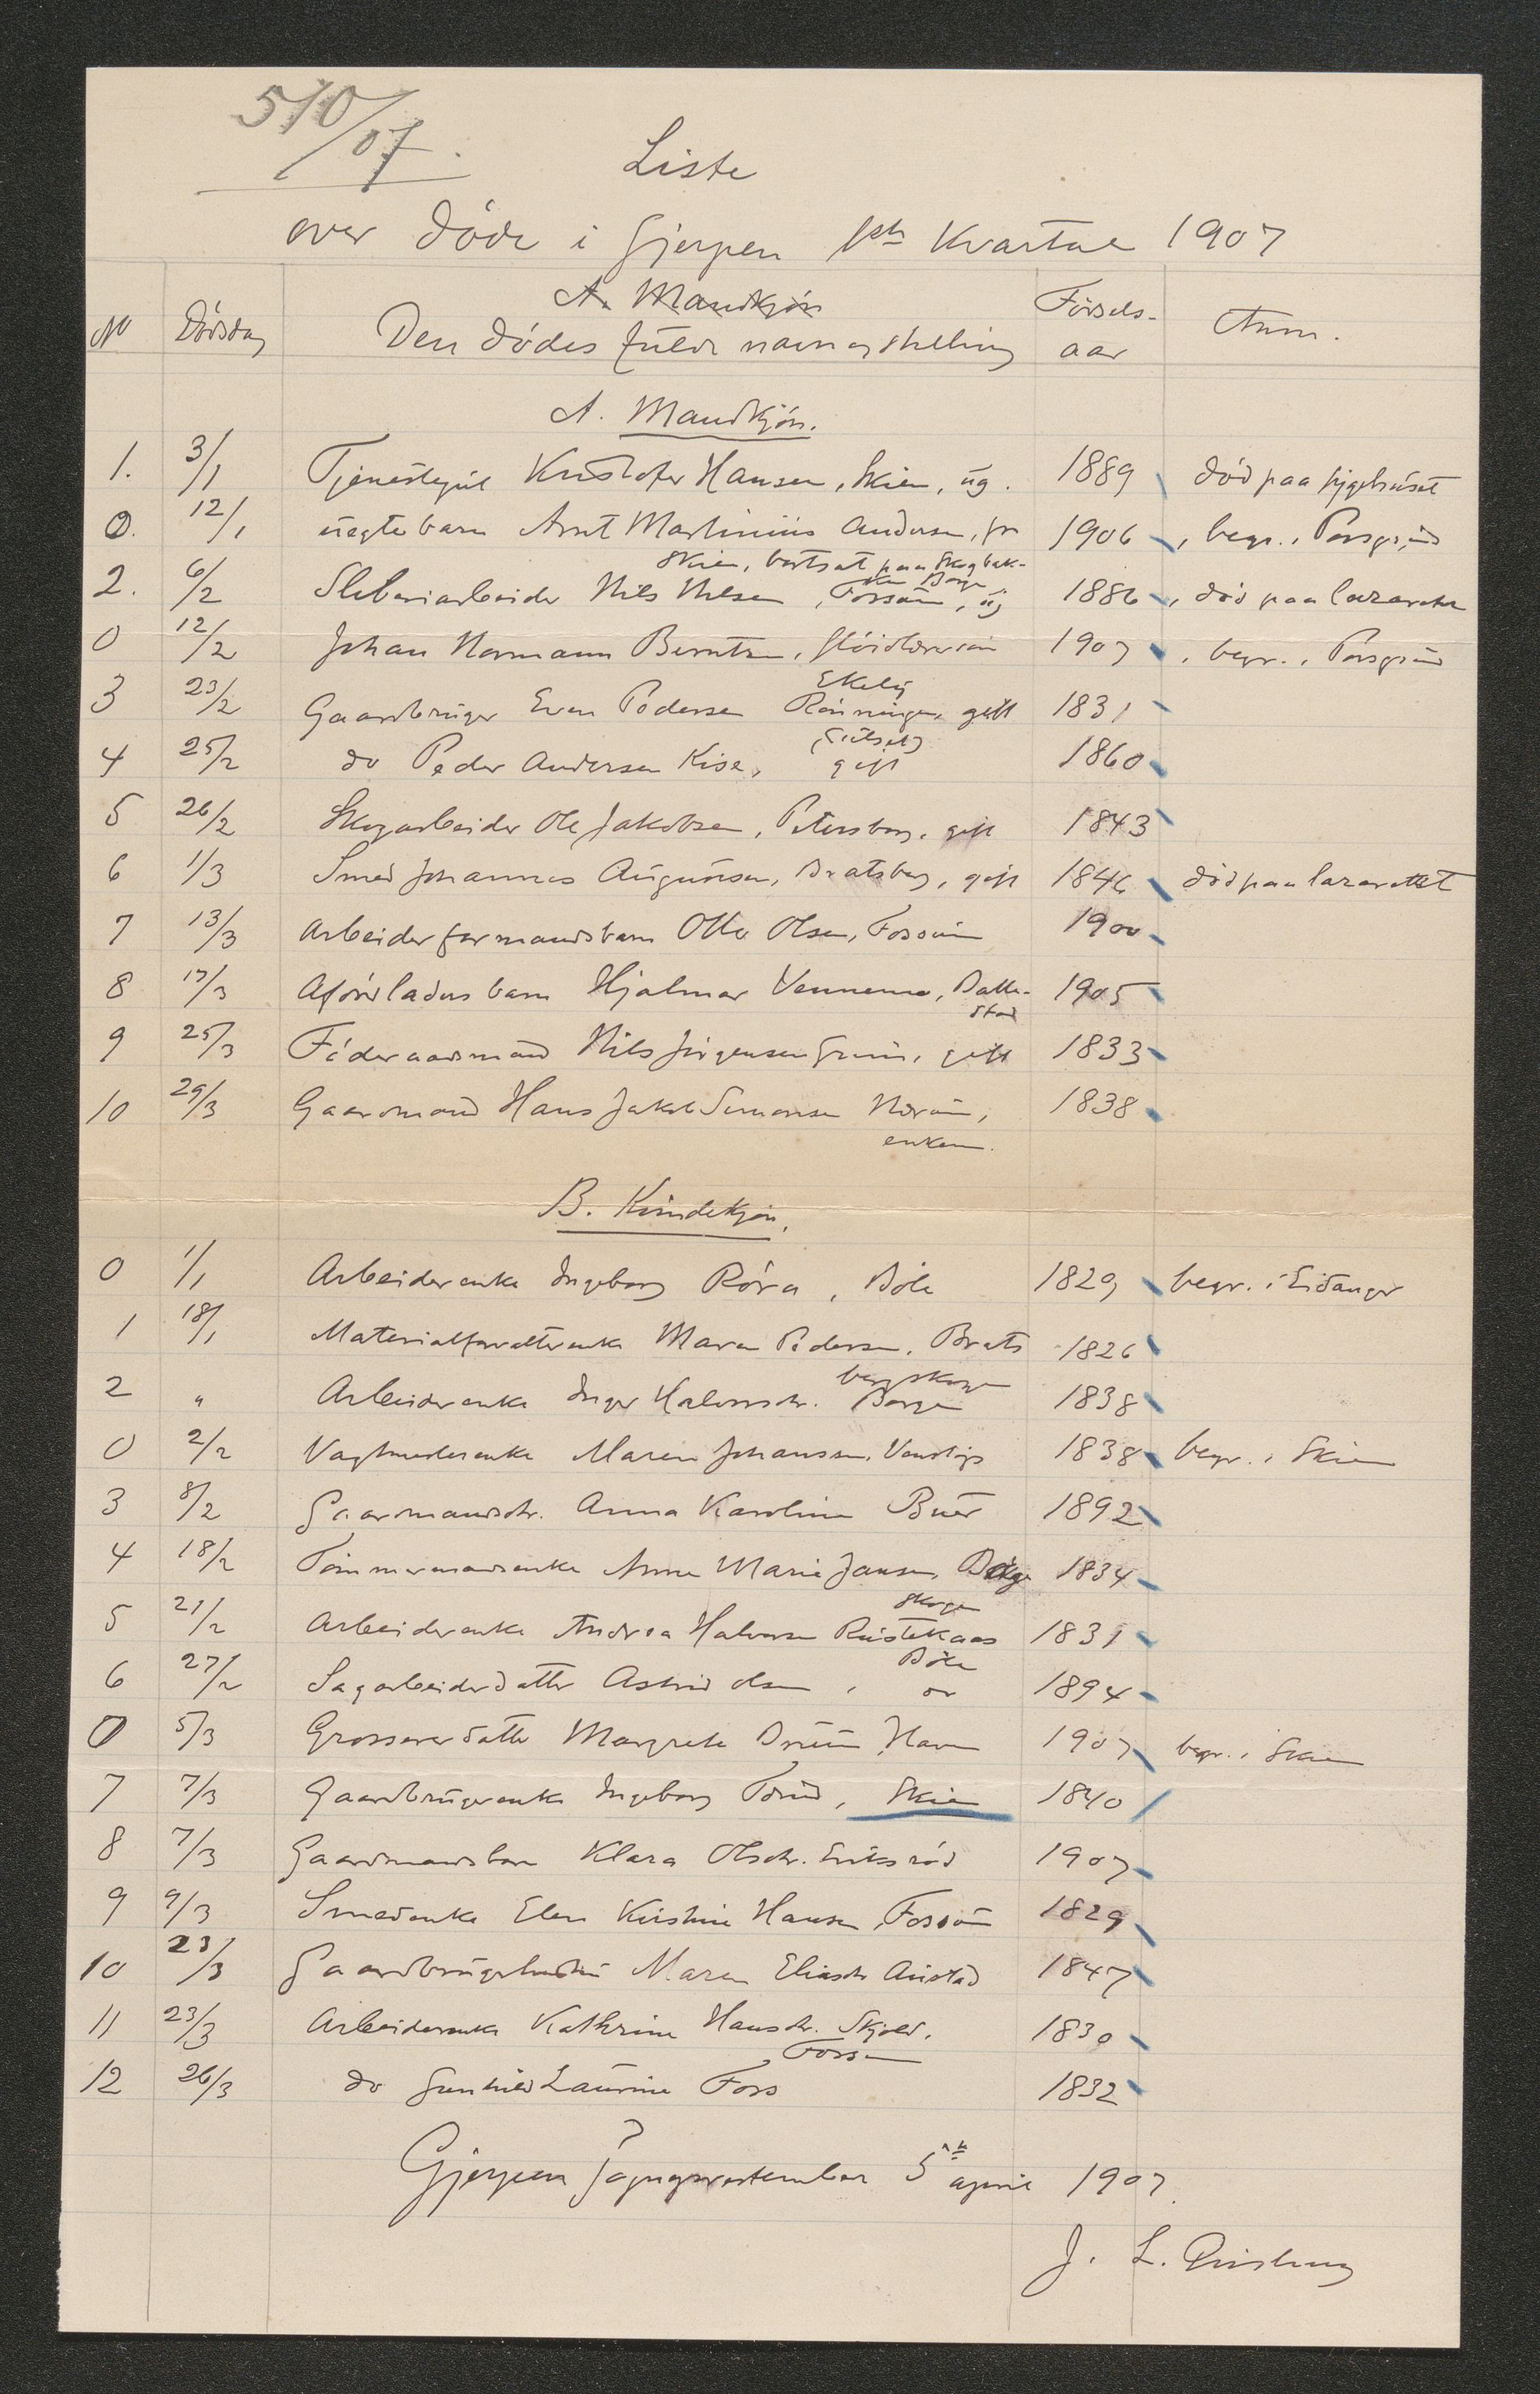 510/07.
Liste
over døde i Gjerpen 1ste Kvartal 1907
A. Mandkjøn
No Dødsdag Den dødes fulde navn og stilling Fødsels-aar Anm.
A. Mandkjøn.
1. 3/1 Tjenestegut Kristofer Hansen, Skien, ug. 1889 død paa sygehuset
0. 12/1 uegte barn Arnt Martinius Andersen, fr 1906, begr. i Porsgrund
Skien, bortsat paa Skogbak-
ken Borge
2. 6/2 Sliberiarbeider Nils Nilsen, Fossum, ug 1886, død paa lazarettet
0 12/2 Johan Hermann Berntsen, 1907, begr. i Porsgrund
3 23/2 Gaardbruger Even Pedersen Rønningen, gift 1831
Ekelig
4 25/2 do Peder Andersen Kise, gift 1860
5 26/2 Skogarbeider Ole Jakobsen, Petersborg, gift 1843
6 1/3 Smed Johannes Augunsen, Bratsberg, gift 1846 død paa lazarettet
7 13/3 Arbeiderformandsbarn Otto Olsen, Fossum 1900
8 17/3 barn Hjalmar Venneme, Balle-
stad 1905
9 25/3 Føderaadsmand Nils Jørgensen Grini, gift 1833
10 29/3 Gaardmand Hans Jakob Simonsen Nørum, 1838
enkem.
B. Kvindekjøn.
0 1/1 Arbeiderenke Ingeborg Røra, Bøle 1829 begr. i Eidanger
1 18/1 Materialforvalterenke Maren Pedersen, Brats 1826
bergskogen
2 " Arbeiderenke Inger Halvorsdr. Borge 1838
0 2/2 Vagtmesterenke Maren Johanssen, 1838 begr. i Skien
3 8/2 Gaardmandsdr. Anna Karoline Buer 1892
4 18/2 Tømmermandsenke Anne Marie Jansen, Bølge 1834
skogen
5 21/2 Arbeiderenke Andrea Halvorsen Rustekaas 1831
Bøle
6 27/2 Sagarbeiderdatter Astrid Olsen, do 1894
0 5/3 Grossererdatter Margrete Bruun, Havn 1907 begr. i Skien
7 7/3 Gaardbrugerenke Ingeborg Forud, Skien 1840
8 7/3 Gaardmandsbarn Klara Olsdr. Eriksrød 1907
9 9/3 Smedenke Elen Kirstine Hansen, Fossum 1829
10 23/3 Gaardbrugerhustru Maren Eliasdr Austad 1847
11 23/3 Arbeiderenke Kathrine Hansdr. Skjold, 1830
Fossum
12 26/3 do Gunhild Laurine Foss 1832
Gjerpen 5te april 1907.
J. L. Quisling